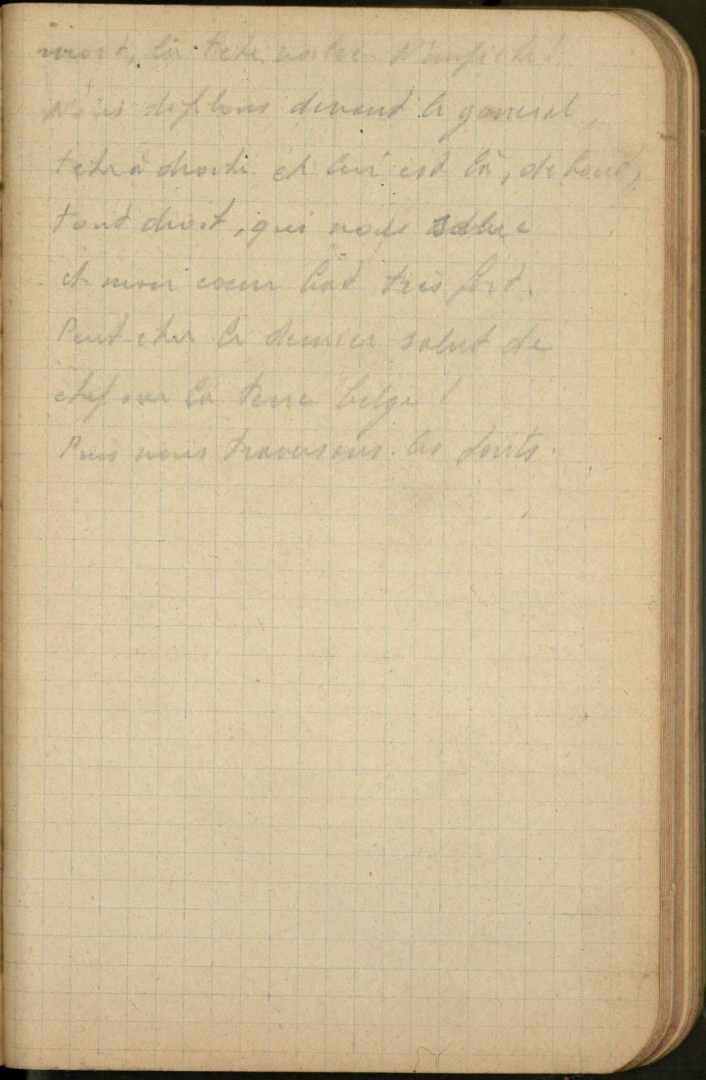 mort, la tete N'empeche!
Nous defilons devant le general,
tete a droite et lui est la, debout,
tout droit, qui nous salue
et mon coeur bat très fort.
Peut etre le dernier salut de
chef sur la terre belge!
Puis nous traversons les ponts.